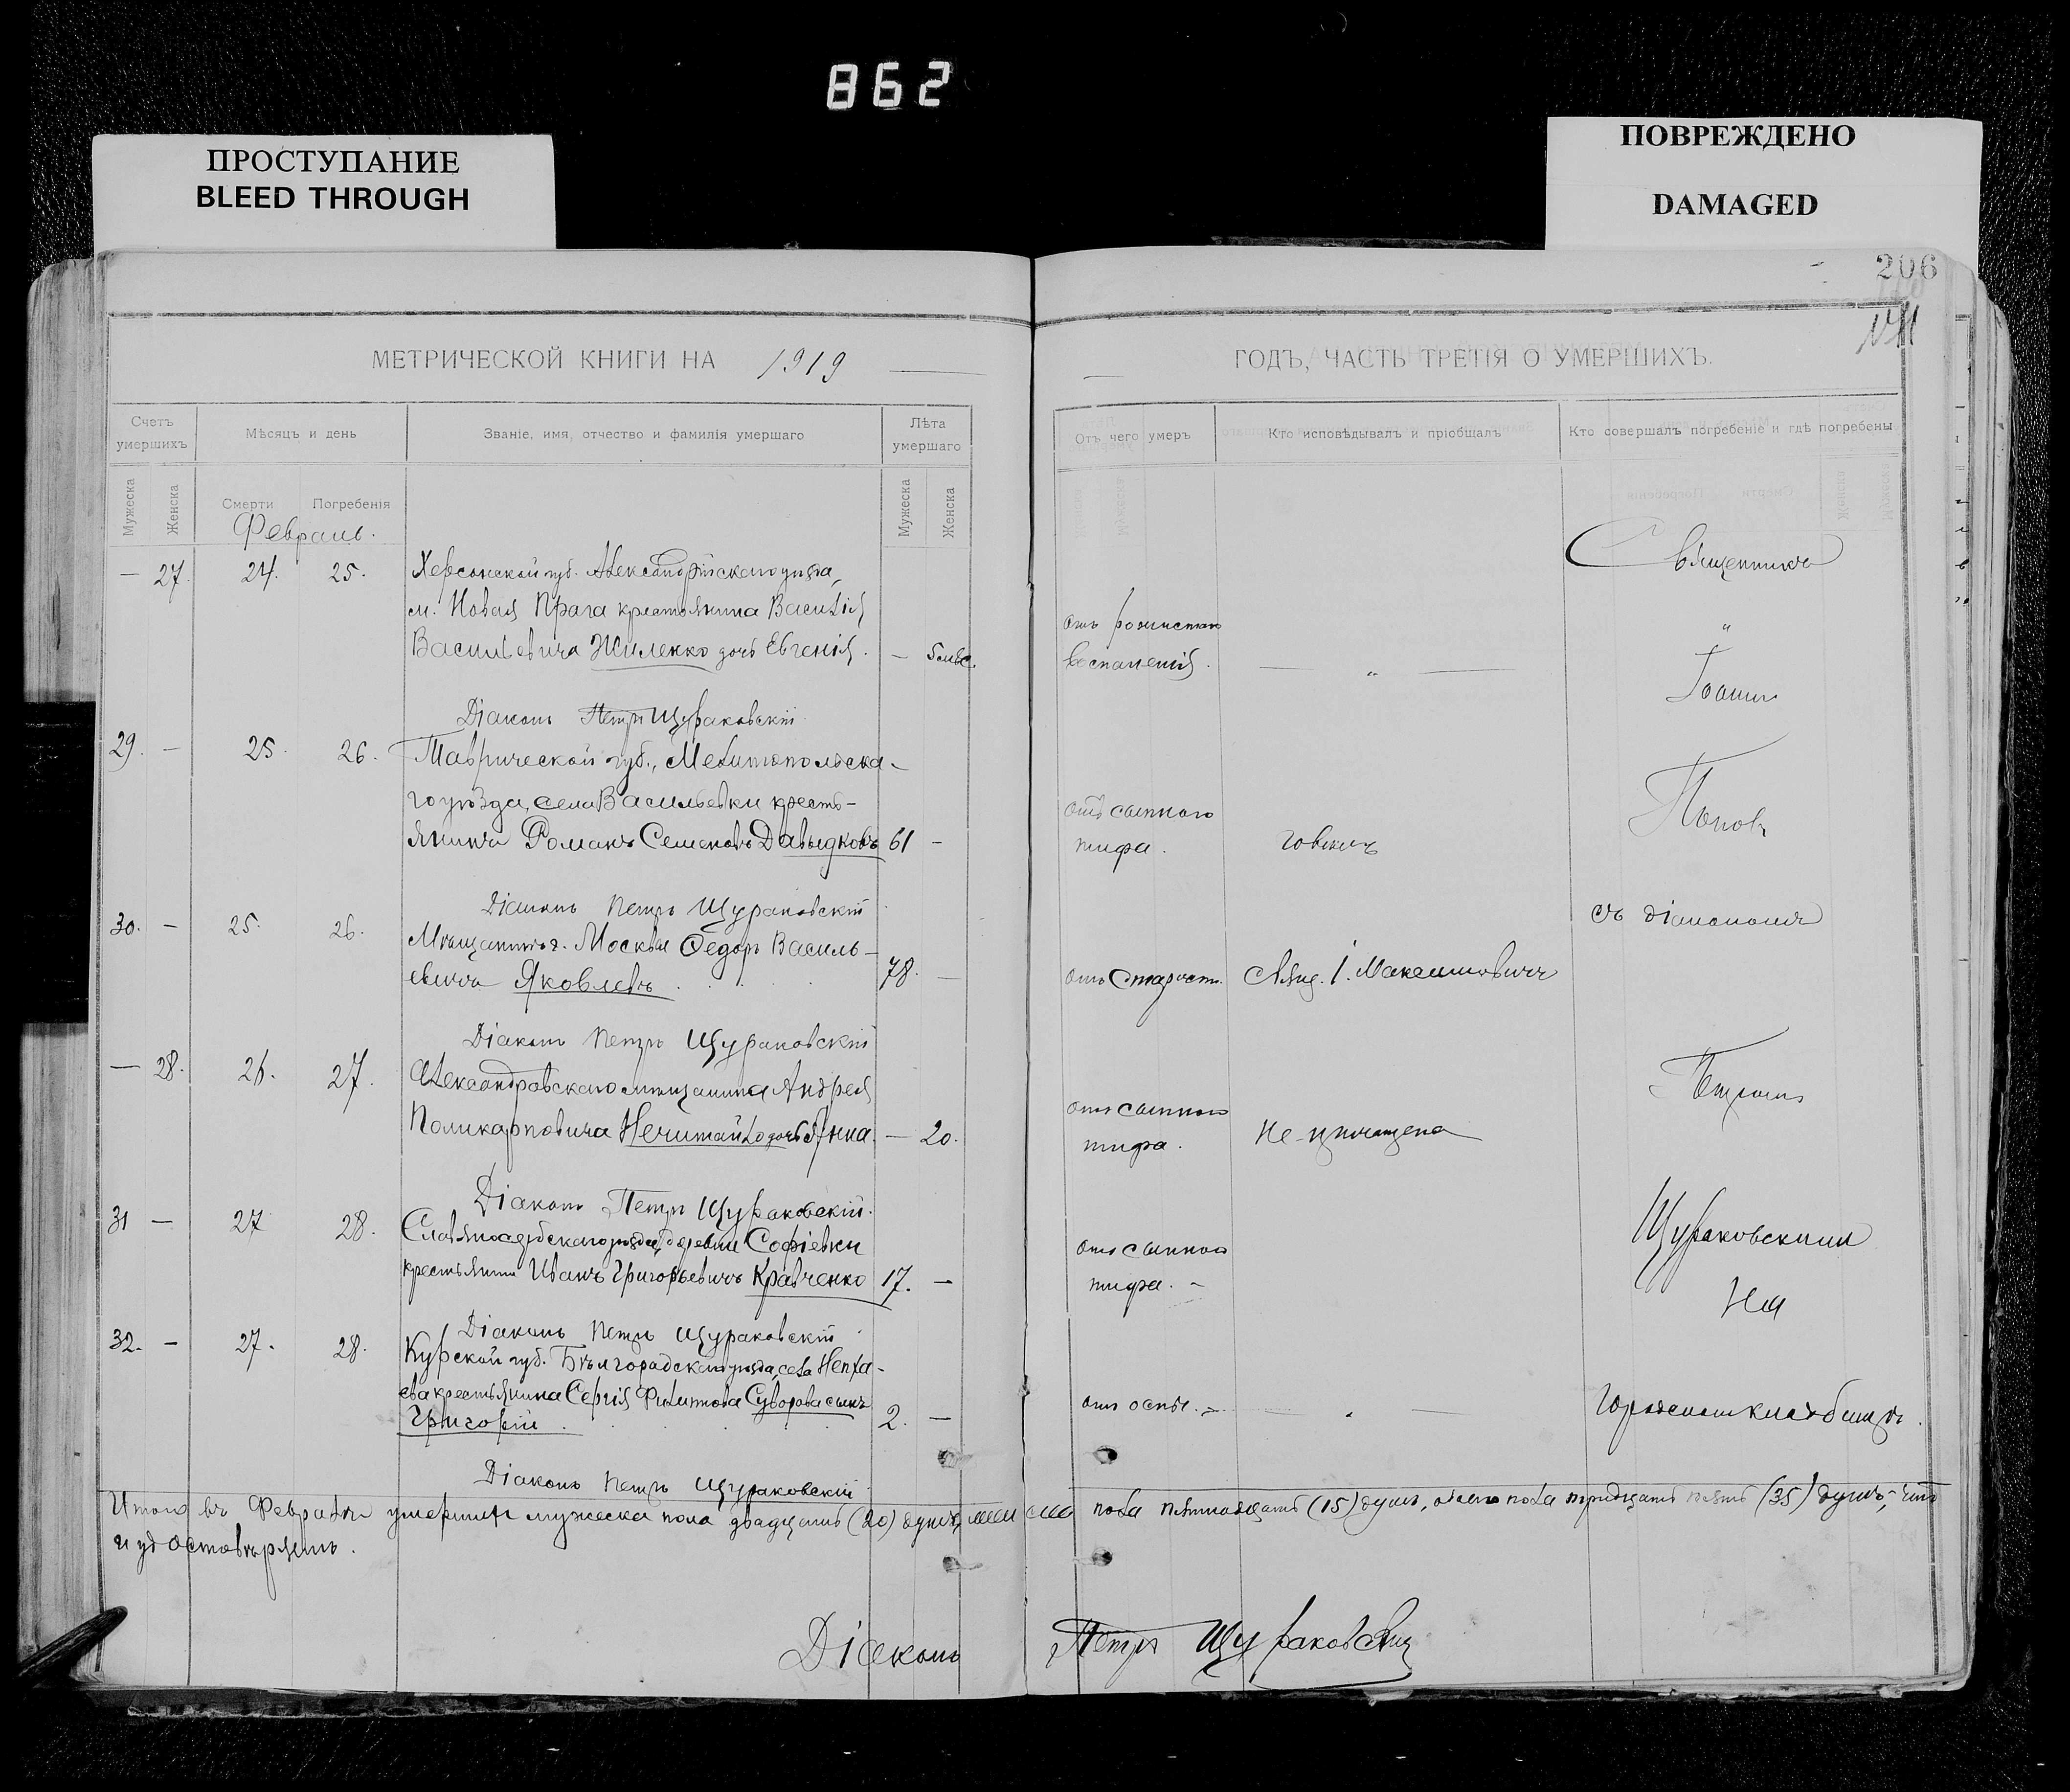 862
ПРОСТУПАНИЕ
BLEED THROUGH
ПОВРЕЖДЕНО
DAMAGED
206
МЕТРИЧЕСКОЙ КНИГИ НА 1919
ГОДЪ, ЧАСТЬ ТРЕТІЯ О УМЕРШИХЪ.
Счетъ умершихъ
Мѣсяцъ и день
Званіе, имя, отчество и фамилія умершаго
Лѣта умершаго
Отъ чего умеръ
Кто исповѣдывалъ и пріобщалъ
Кто совершалъ погребеніе и гдѣ погребены
Мужеска
Женска
Смерти
Погребенія
Мужеска
Женска
Февраль.
— 27. 24. 25. Херсонской губ. Александрійскаго уѣзда,
м. Новая Прага крестьянина Василія
Васильевича Жиленко дочь Евгенія. — 5 мѣс.
отъ рожистаго
воспаленія. — „ —
Діаконъ Петръ Щураковскій
29. — 25. 26. Таврической губ., Мелитопольска-
го уѣзда, села Васильевки кресть-
янинъ Романъ Семеновъ Давыдковъ 61 —
отъ сыпного
тифа.
Діаконъ Петръ Щураковскій
30. — 25. 26. Мѣщанинъ г. Москвы Ѳедоръ Василь-
евичъ Яковлевъ 78. —
отъ старости. Свящ. І. Максимовичъ
Діаконъ Петръ Щураковскій
— 28. 26. 27. Александровскаго мѣщанина Андрея
Поликарповича Нечитайло дочь Анна. — 20.
отъ сыпного
тифа. Не причащена
Діаконъ Петръ Щураковскій.
31 — 27 28. Славяносербскаго уѣзда, деревни Софіевки
крестьянинъ Иванъ Григорьевичъ Кравченко 17. —
отъ сыпного
тифа. —
Діаконъ Петръ Щураковскій
32. — 27. 28. Курской губ. Бѣлгородскаго уѣзда, села Непха-
ева крестьянина Сергія Филиппова Суворова сынъ
Григорій 2. —
отъ оспы. — „ —
Діаконъ Петръ Щураковскій
Священникъ
„
Іоаннъ
Поповъ
съ діакономъ
Петромъ
Щураковскимъ
На
городскомъ кладбищѣ.
Итого въ Февралѣ умершихъ мужеска пола двадцать (20) душъ, женска пола пятнадцать (15) душъ, обоего пола тридцать пять (35) душъ, что
и удостовѣряемъ.
Діаконъ Петръ Щураковскій